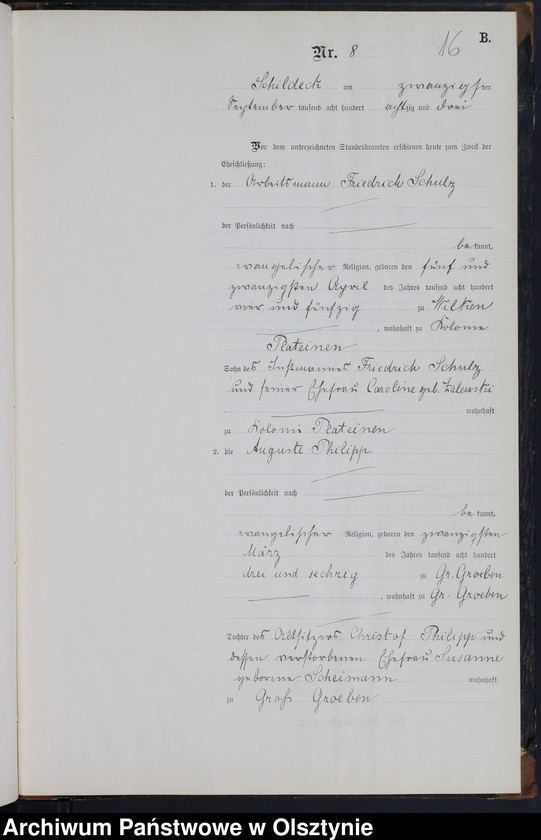 16 B.
Nr. 8
Schildeck am zwanzigsten
September tausend acht hundert achtzig und drei
Vor dem unterzeichneten Standesbeamten erschienen heute zum Zweck der
Eheschließung:
1. der Arbeitsmann Friedrich Schulz
der Persönlichkeit nach
bekannt,
evangelischer Religion, geboren den fünf und
zwanzigsten April des Jahres tausend acht hundert
vier und fünfzig zu Wilken
, wohnhaft zu Kolonie
Plateinen
Sohn des Instmannes Friedrich Schulz
und seiner Ehefrau Caroline geb. Zalewski
wohnhaft
zu Kolonie Plateinen
2. die Auguste Philipp
der Persönlichkeit nach
bekannt,
evangelischer Religion, geboren den zwanzigsten
März des Jahres tausend acht hundert
drei und sechzig zu Gr. Groeben
, wohnhaft zu Gr. Groeben
Tochter des Altsitzers Christof Philipp und
dessen verstorbenen Ehefrau Susanne
geborene Scheimann wohnhaft
zu Groß Groeben
Archiwum Państwowe w Olsztynie